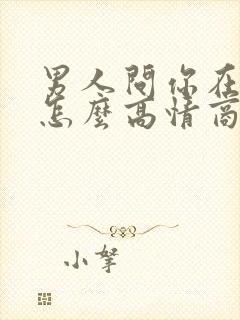 男人問你在
怎麼高情商
小拏